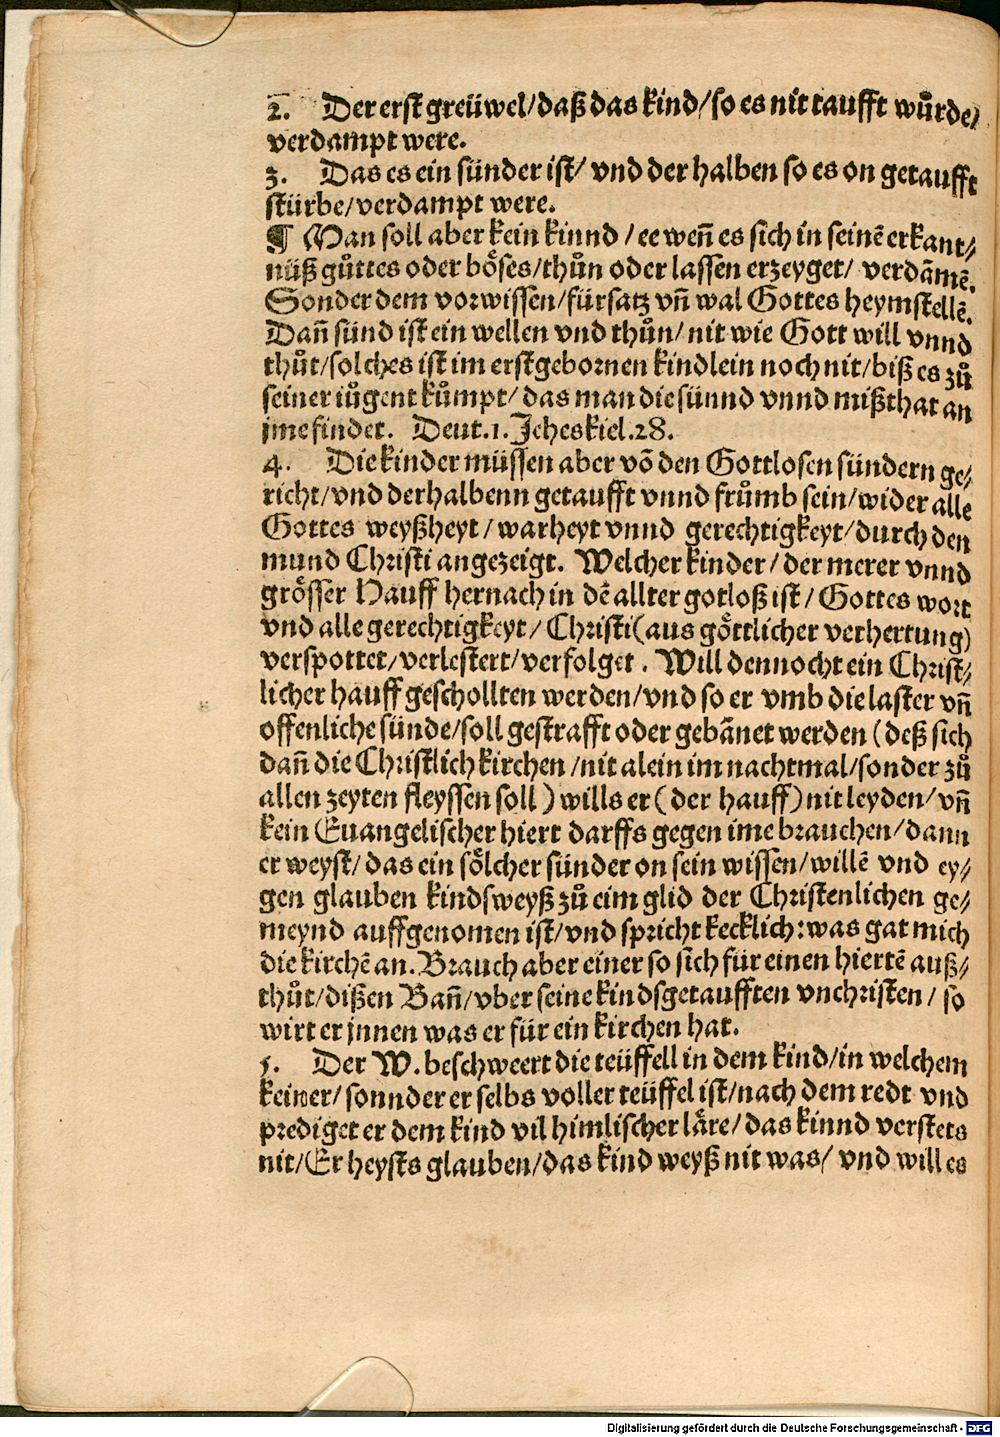 2. Der erst greüwel/daß das kind/so es nit taufft wůrde/
verdampt were.
3. Das es ein sünder ist/ vnd der halben so es on getaufft
stürbe/verdampt were.
¶ Man soll aber kein kinnd /ee weñ es sich in seinē erkant⸗/
nüß gůttes oder böses/thůn oder lassen erzeyget/ verdāmē.
Sonder dem vorwissen/fürsatz vñ wal Gottes heymstellē.
Dañ sünd ist ein wellen vnd thůn/ nit wie Gott will vnnd
thůt/solches ist im erstgebornen kindlein noch nit/biß es zů
seiner iůgent kůmpt/ das man die sünnd vnnd mißthat an
jme findet. Deut.1. Jcheskiel.28.
4. Die kinder müssen aber vō den Gottlosen sündern ge⸗/
richt/vnd derhalbenn getaufft vnnd frůmb sein/wider alle
Gottes weyßheyt/warheyt vnnd gerechtigkeyt/durch den
mund Christi angezeigt. Welcher kinder/ der merer vnnd
grösser Hauff hernach in dē allter gotloß ist/ Gottes wort
vnd alle gerechtigkeyt/ Christi(aus göttlicher verhertung)
verspottet/verlestert/verfolget. Will dennocht ein Christ⸗/
licher hauff geschollten werden/vnd so er vmb die laster vñ
offenliche sünde/soll gestrafft oder gebānet werden (deß sich
dañ die Christlich kirchen /nit alein im nachtmal/sonder zů
allen zeyten fleyssen soll) wills er (der hauff) nit leyden/vñ
kein Euangelischer hiert darffs gegen ime brauchen/dann
er weyst/das ein sölcher sünder on sein wissen/willē vnd ey⸗/
gen glauben kindsweyß zů eim glid der Christenlichen ge⸗/
meynd auffgenomen ist/vnd spricht kecklich:was gat mich
die kirchē an. Brauch aber einer so sich für einen hiertē auß⸗/
thůt/dißen Bañ/vber seine kindsgetaufften vnchristen/ so
wirt er jnnen was er für ein kirchen hat.
5. Der W. beschweert die teüffell in dem kind/in welchem
keiner/sonnder er selbs voller teüffel ist/nach dem redt vnd
prediget er dem kind vil himlischer läre/das kinnd verstets
nit/Er heysts glauben/das kind weyß nit was/ vnd will es
Digitalisierung gefördert durch die Deutsche Forschungsgemeinschaft - DFG